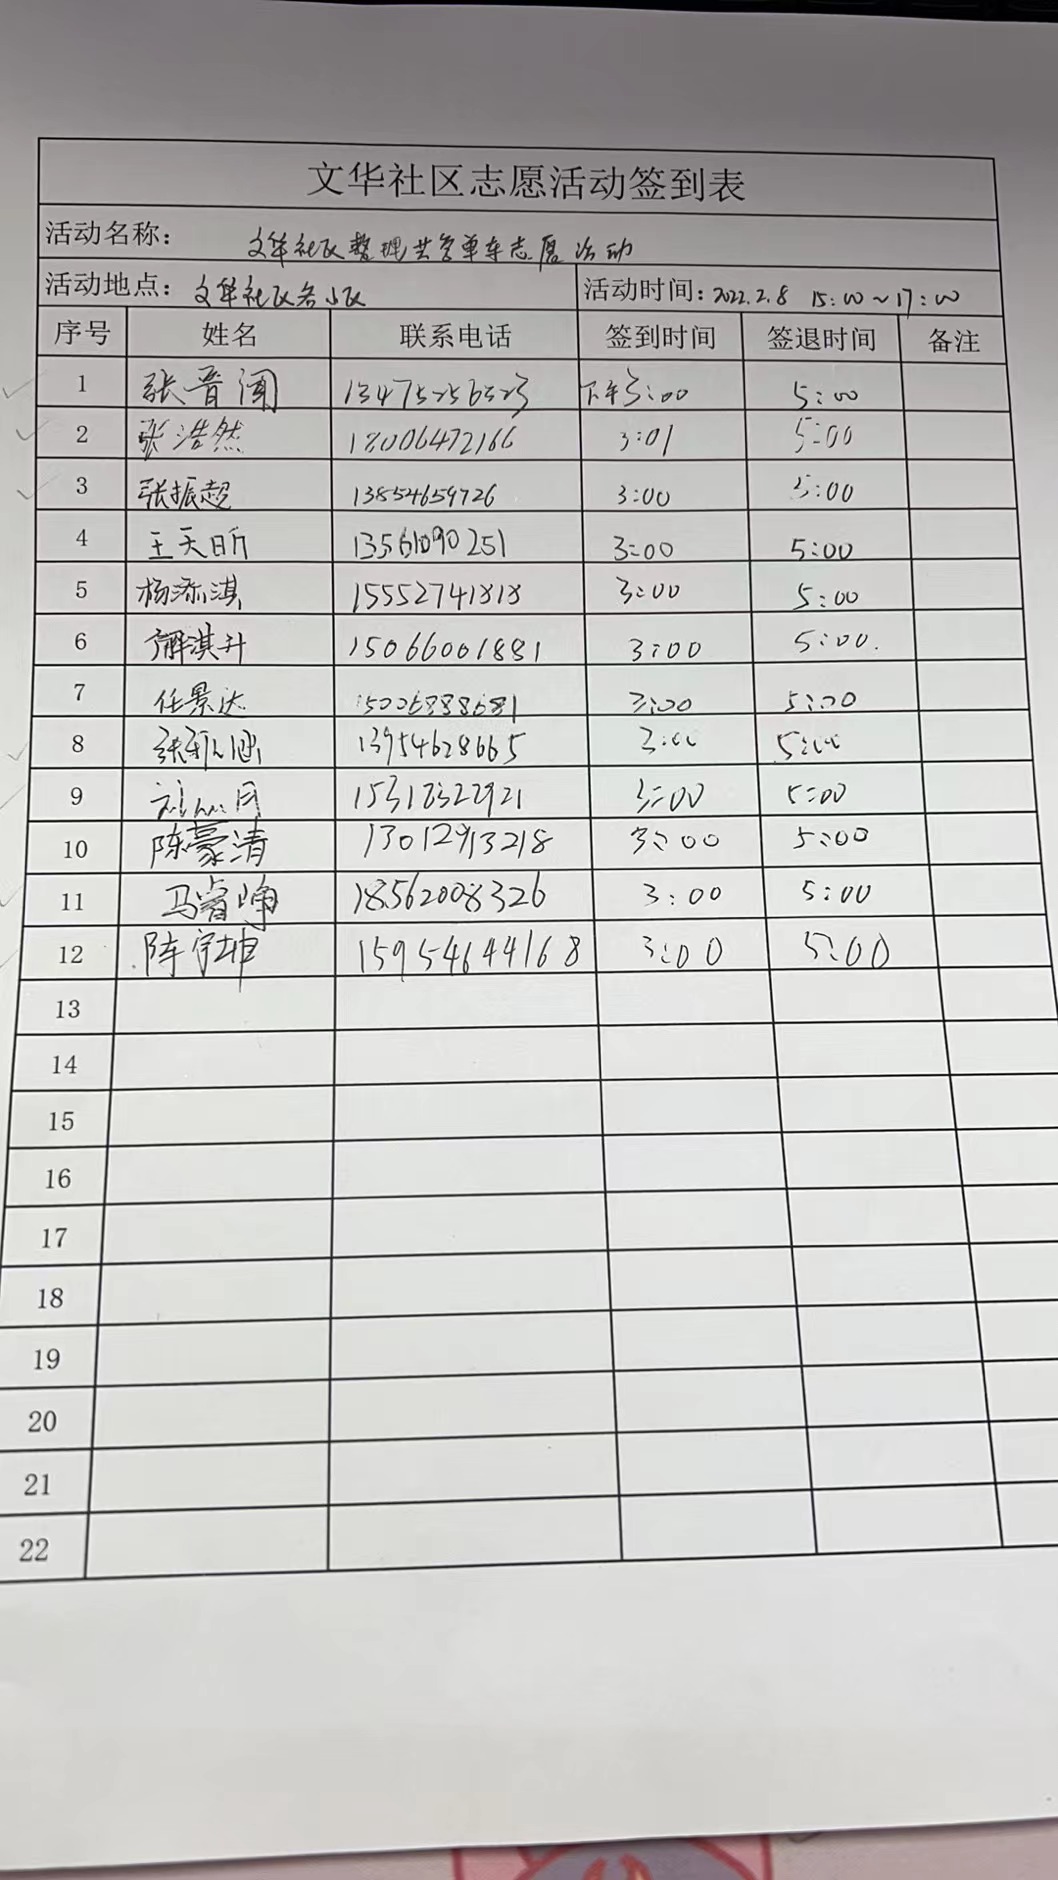 文华社区志愿活动签到表
活动名称： 文华社区整理共享单车志愿活动
活动地点：文华社区各小区 活动时间：2022.2.8 15:00~17:00
序号 姓名 联系电话 签到时间 签退时间 备注
1 张晋闻 13475256523 下午3:00 5:00
2 张浩然 18006472166 3:01 5:00
3 张振超 13854659726 3:00 5:00
4 王天昕 13561090251 3:00 5:00
5 杨添淇 15552741818 3:00 5:00
6 解淇升 15066001881 3:00 5:00.
7 任景达 15006888681 3:00 5:00
8 张 涵 13954628665 3:00 5:00
9 刘 月 15318322921 3:00 5:00
10 陈豪清 13012913218 3:00 5:00
11 马睿 18562008326 3:00 5:00
12 陈宇坤 15954644168 3:00 5:00
13
14
15
16
17
18
19
20
21
22